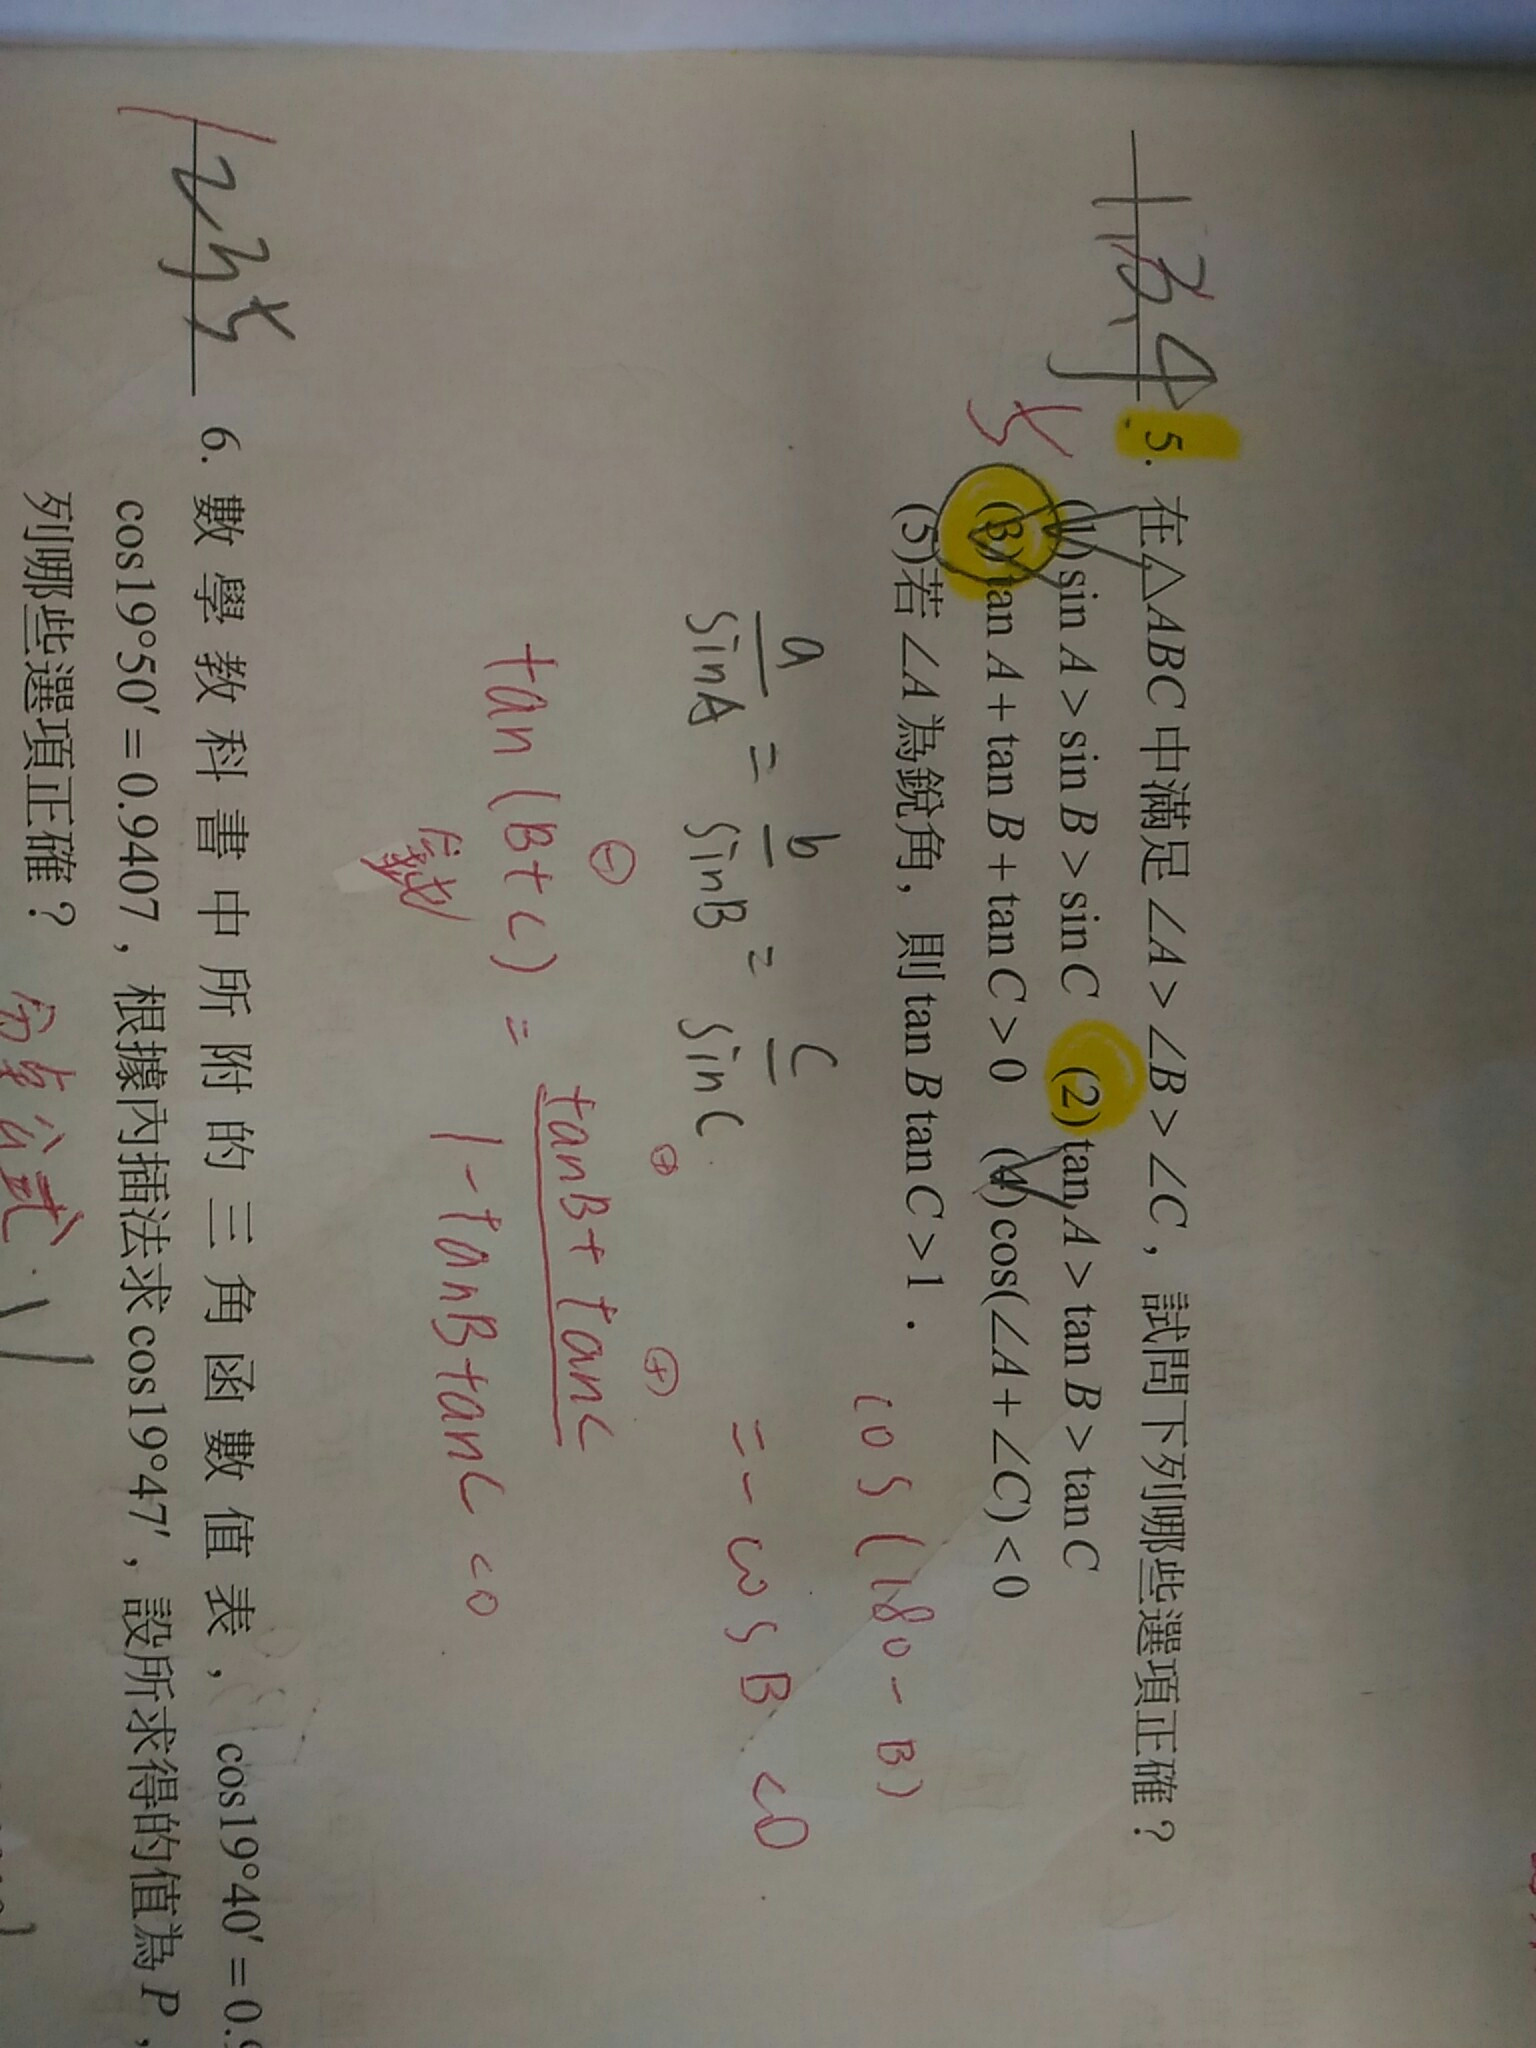 134 5
5. 在△ABC中滿足∠A>∠B>∠C，試問下列哪些選項正確？
(1)sin A>sin B>sin C (2)tan A>tan B>tan C
(3)tan A+tan B+tan C>0 (4)cos(∠A+∠C)<0
(5)若∠A為銳角，則tan B tan C>1．
cos(180-B)
a/sinA = b/sinB = c/sinC
= -cosB <0
⊖ ⊕ ⊕
tan(B+C) = tanB+tanC / 1-tanBtanC <0
鈍
1235
6. 數學教科書中所附的三角函數值表，cos19°40′=0.9
cos19°50′=0.9407，根據內插法求cos19°47′，設所求得的值為P，
列哪些選項正確？
分點公式